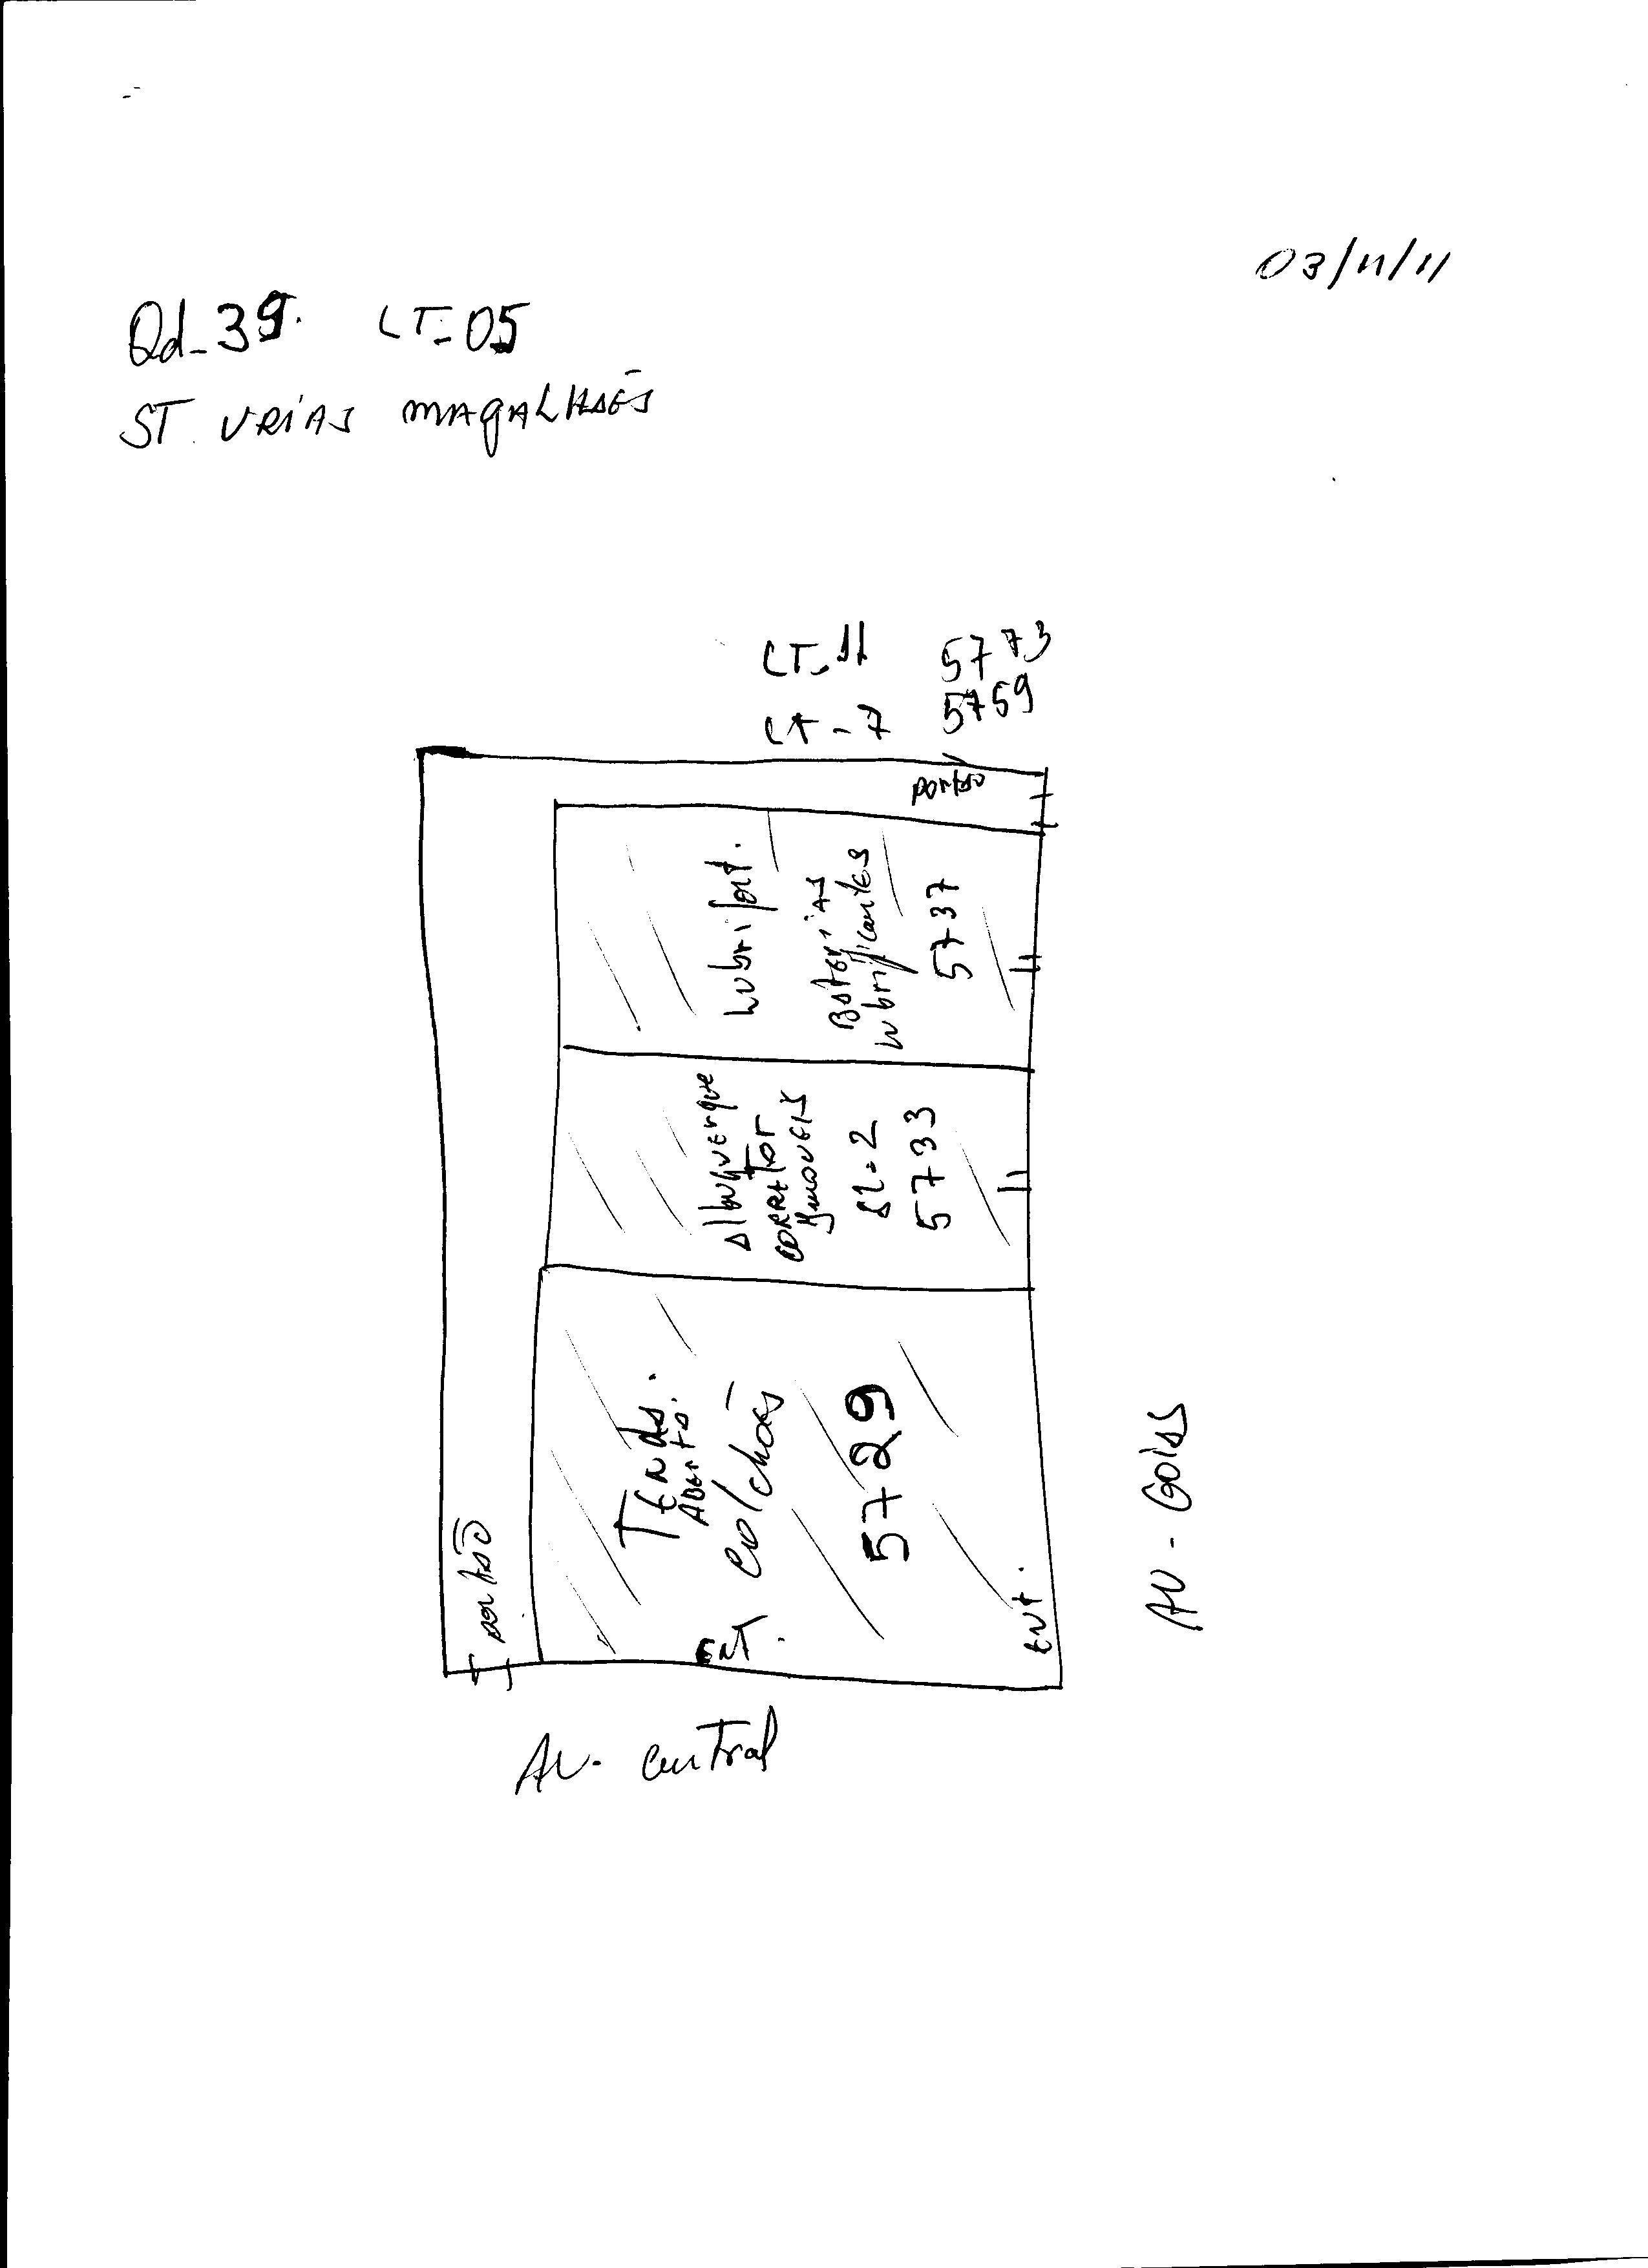 03/11/11
Qd-39. LT-05
ST. URIAS MAGALHÃES
LT-11 5773
LT-7 5759
portão
Lubrifort.
BATERIAS
Lubrificantes
5737
Albuquerque
CORRETOR
IMOVEIS
SL-2
5733
TENDA.
ABERTA.
colchões
5729
ENT.
ENT.
portão
AV - GOIAS
AV. central